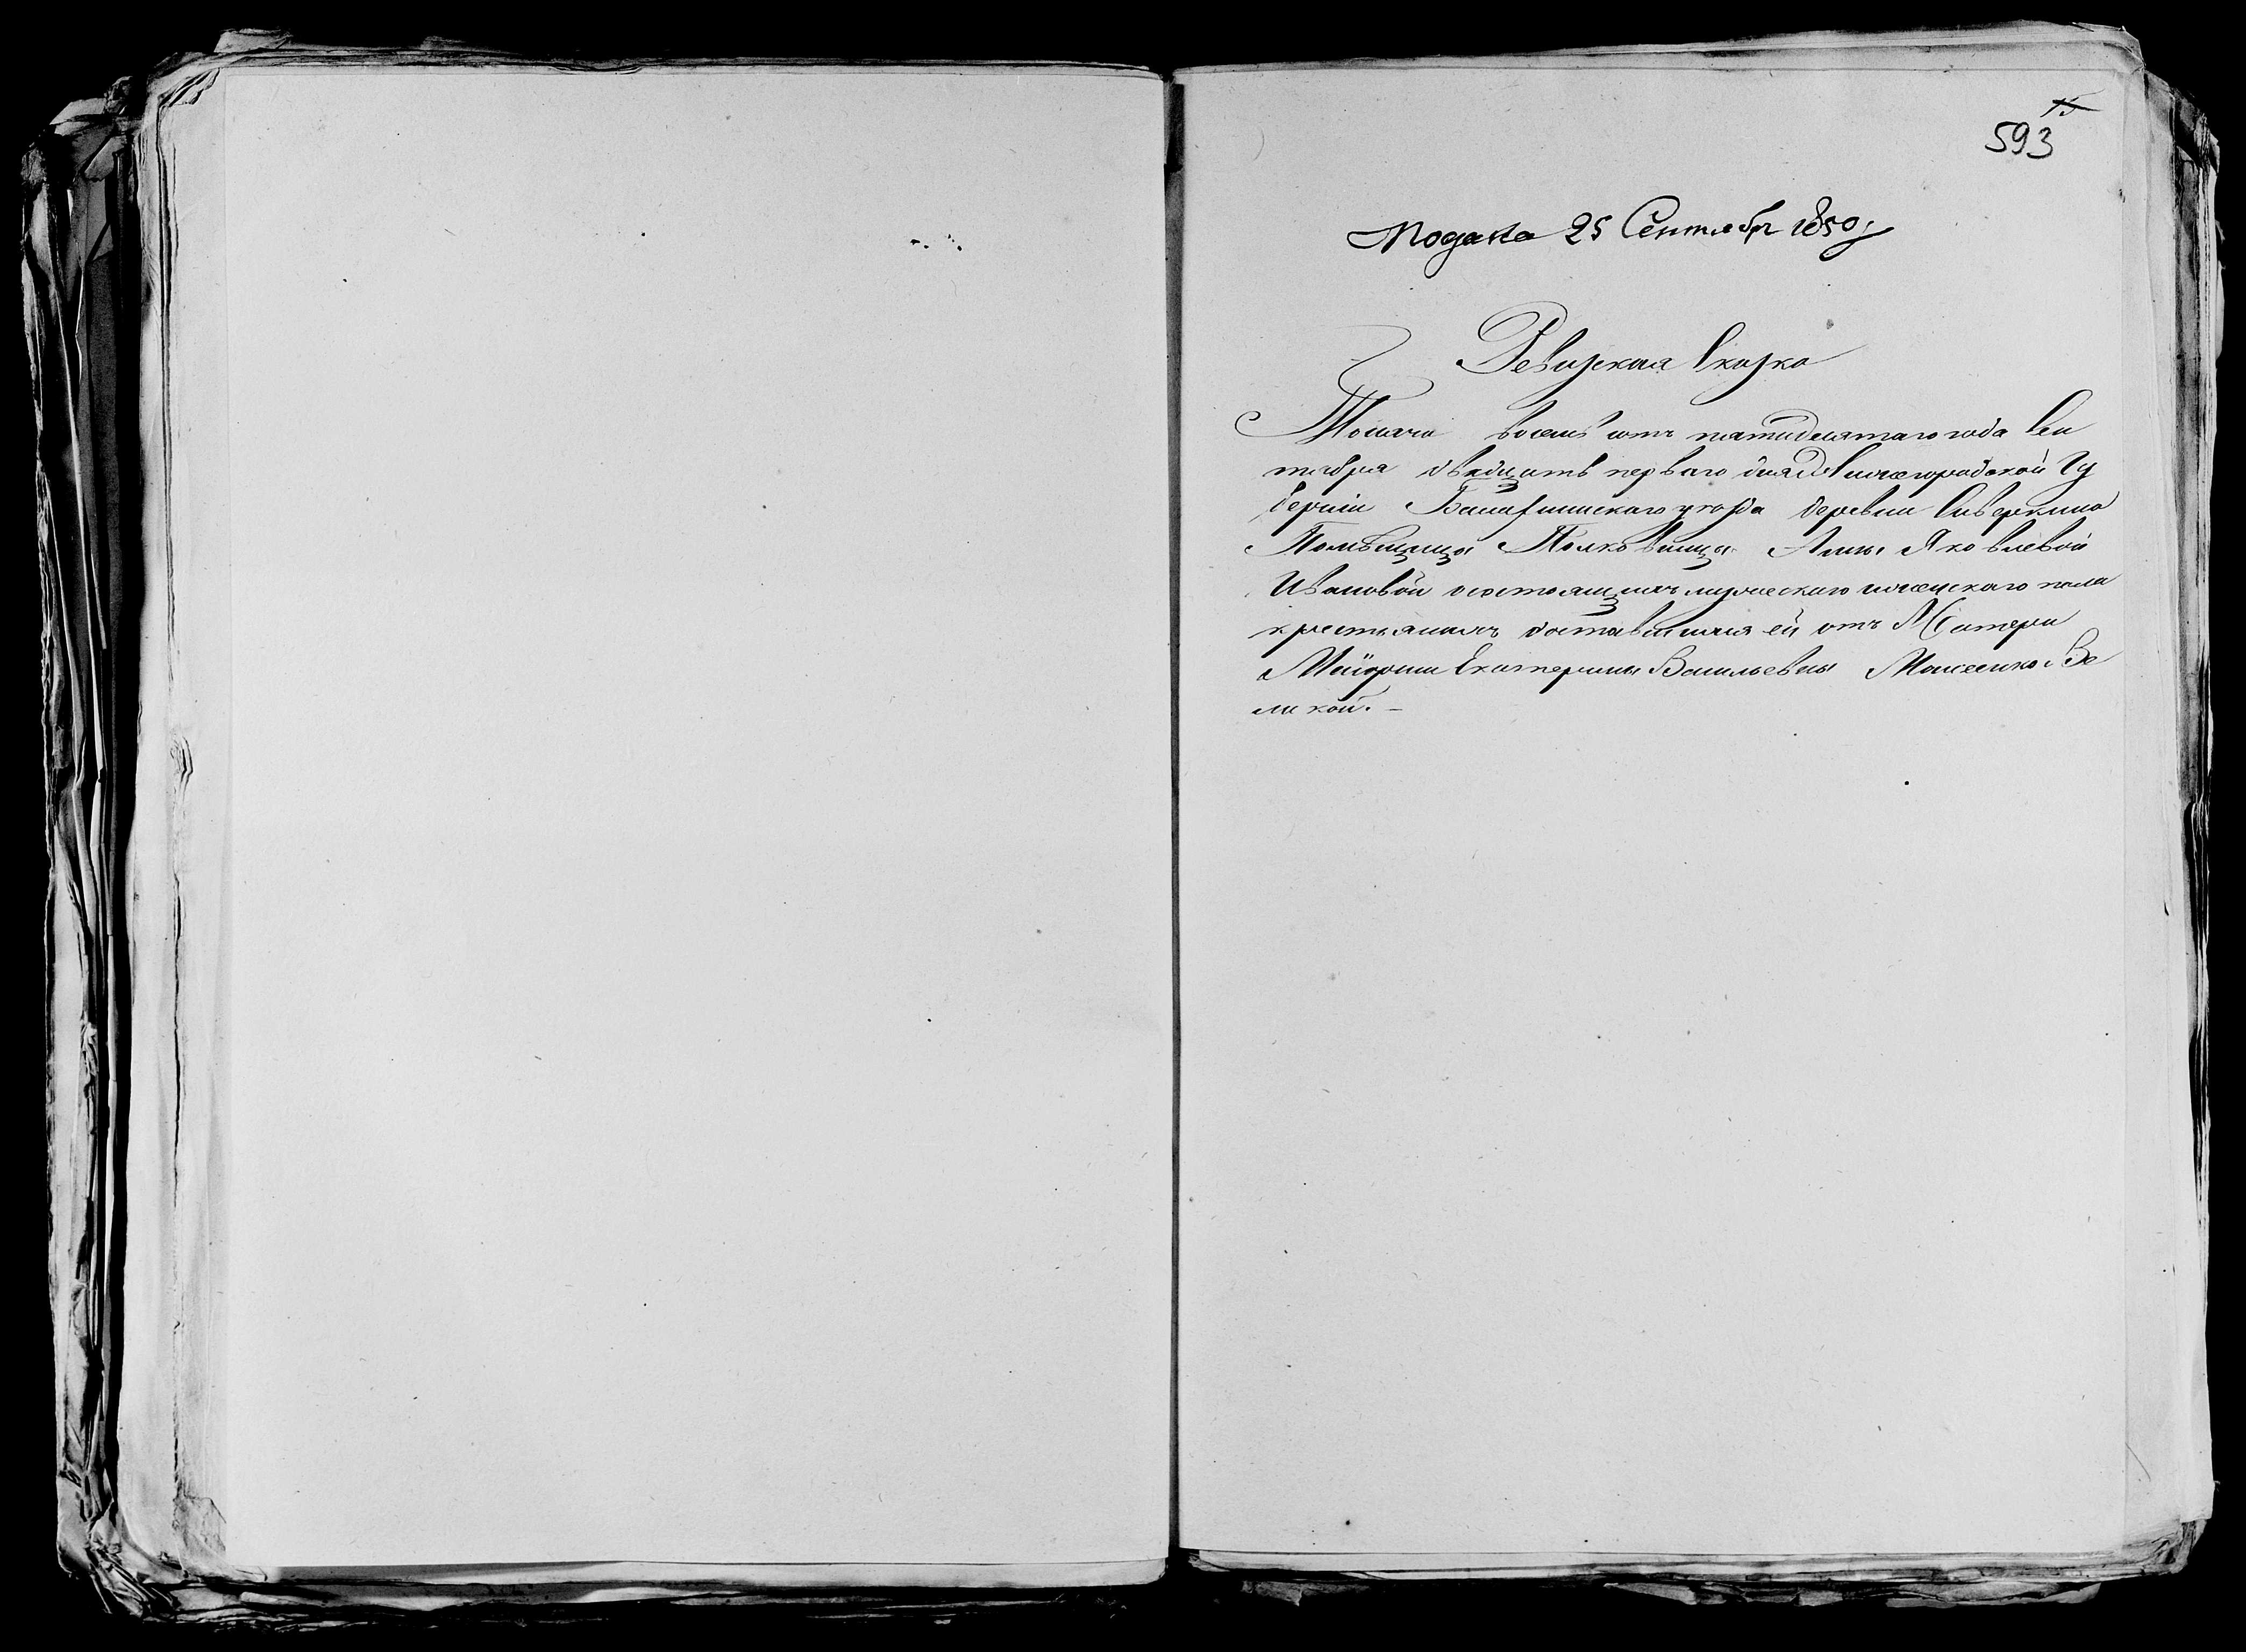 593
Подана 25 Сентября 1850 г
Ревизская Сказка
Тысяча восемь сотъ пятидесятаго года Сен
тября двадцать перваго дня Нижегородской Гу
берніи уезда деревни Сиверкина
Помѣщицы Полковницы Анны Яковлевой
Ивановой о состоящихъ мужескаго и женскаго пола
крестьянахъ доставшихся ей отъ Матери
Маіорши Екатерины Васильевны Моисеенко Ве
ликой. –